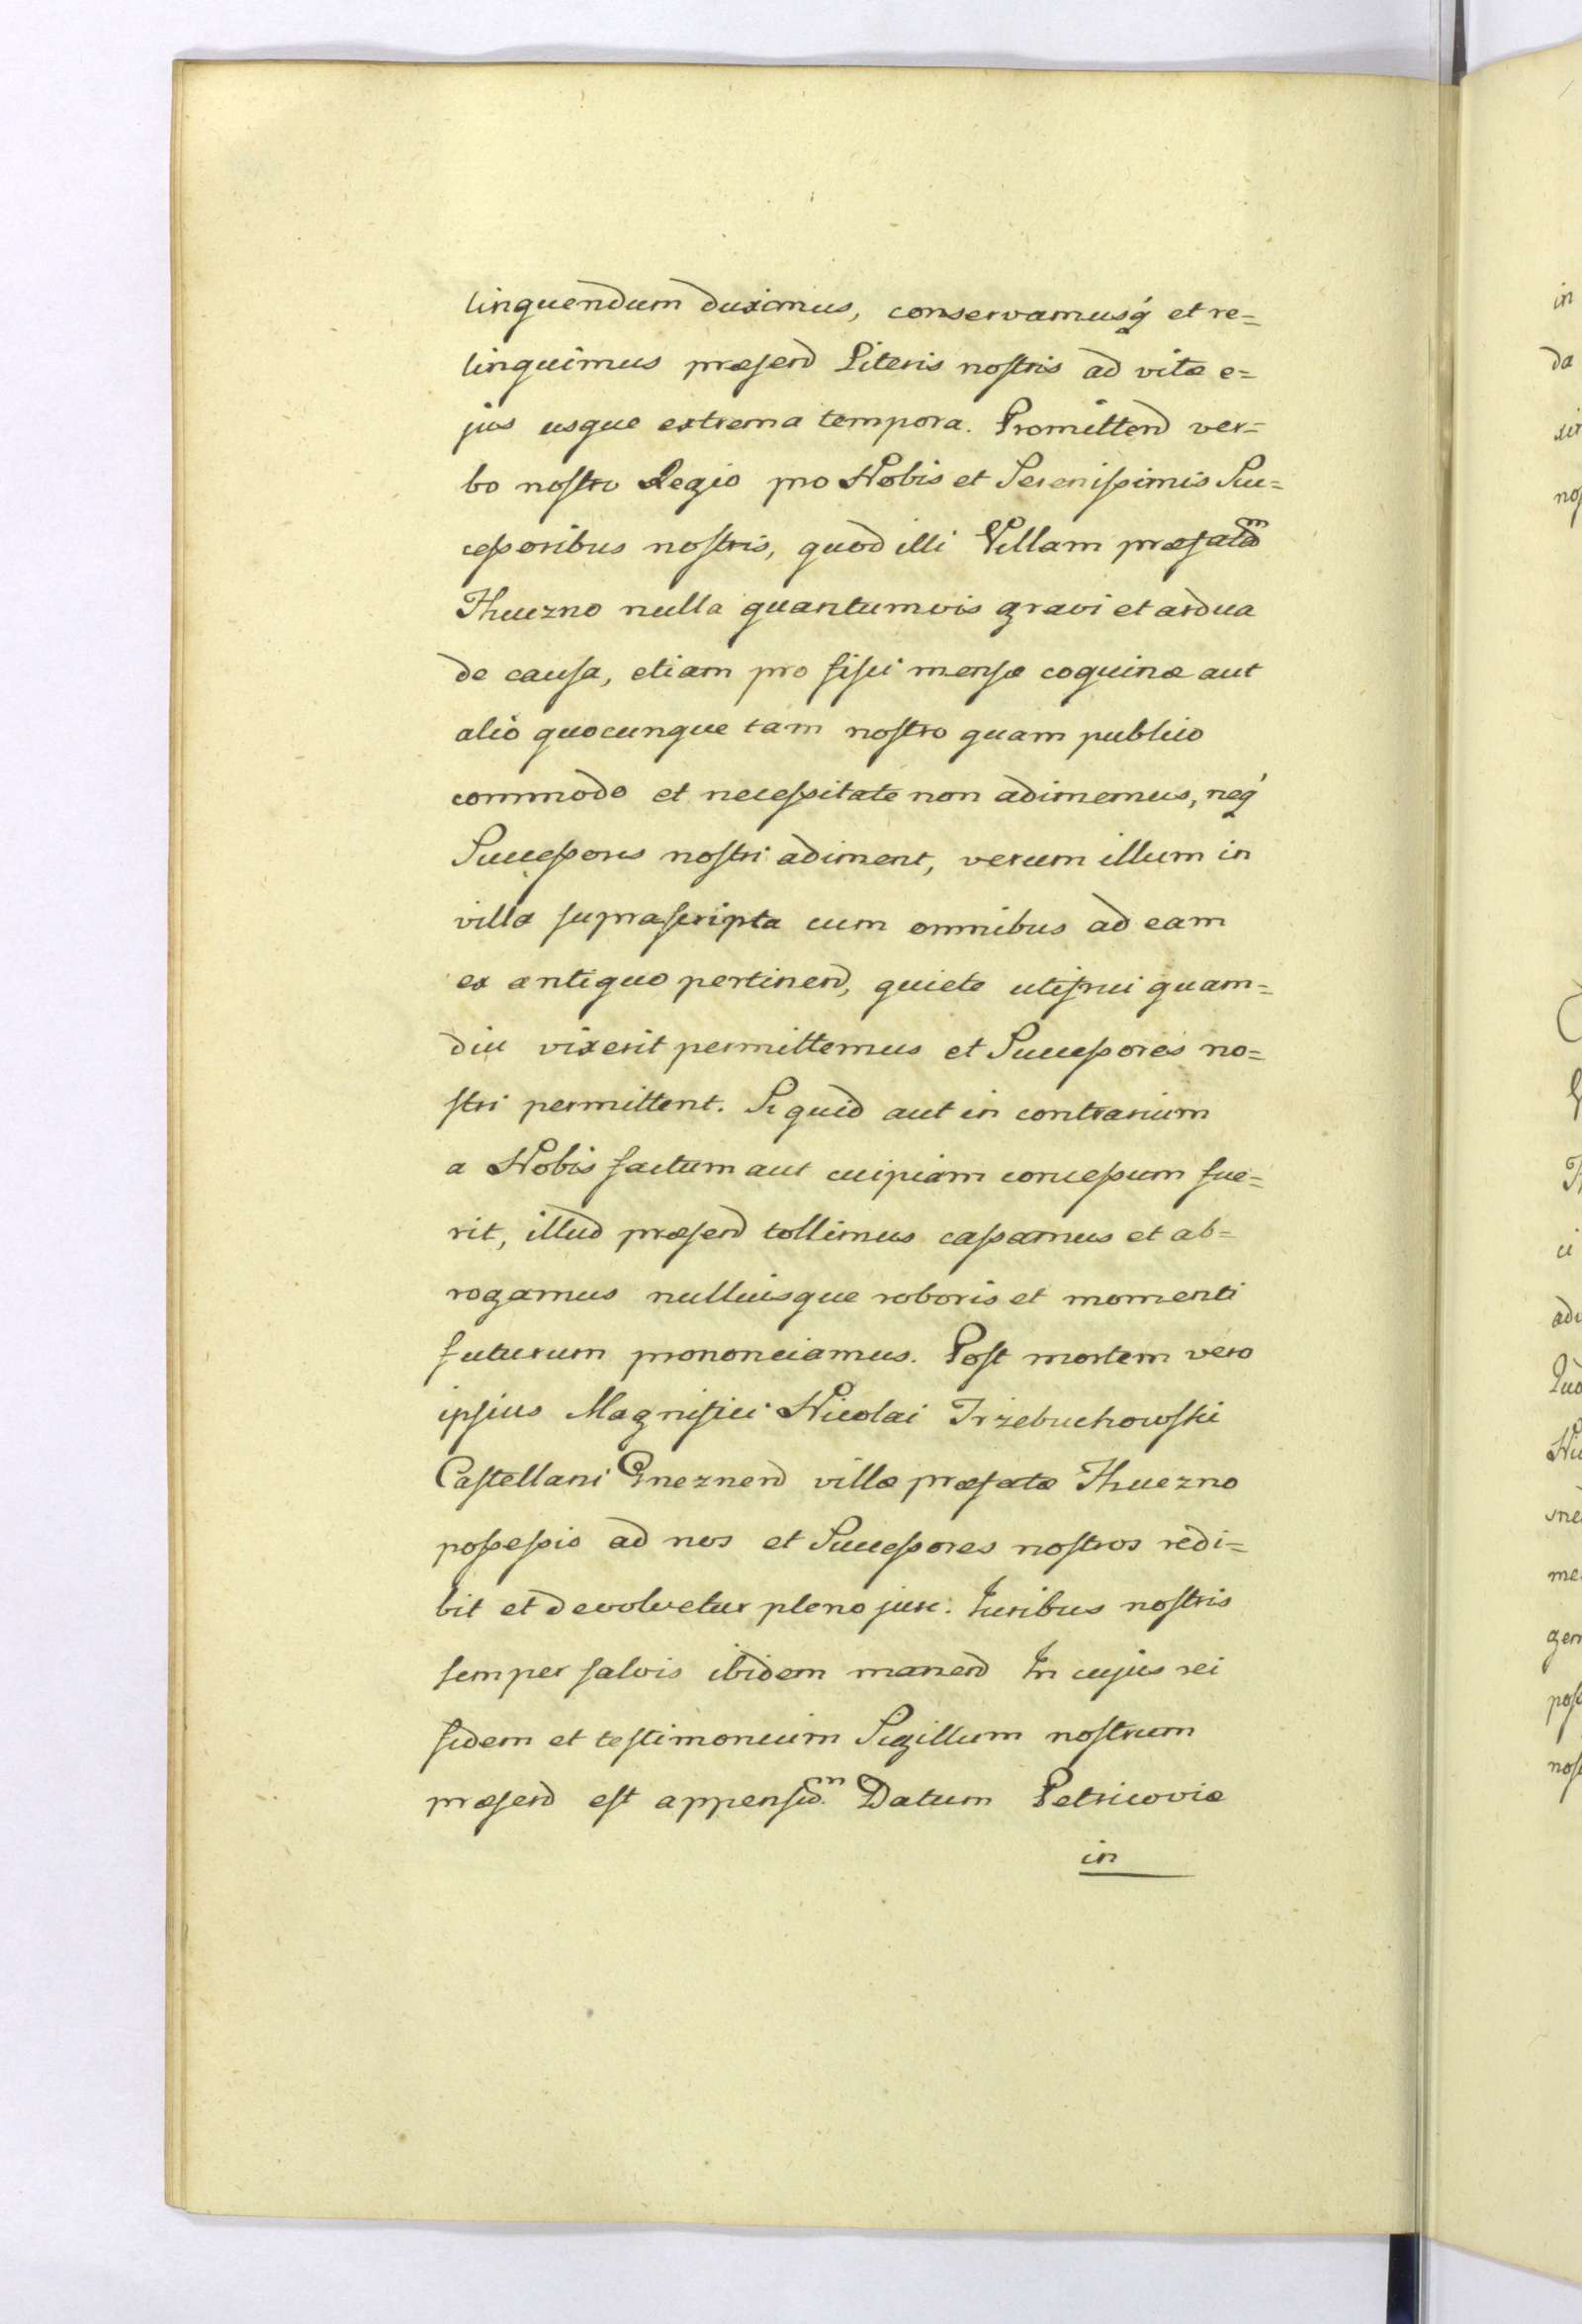 linquendum duximus, conservamusq́ et re=
linquimus præsend Literis nostris ad vitæ e=
jus usque extrema tempora. Promittend ver=
bo nostro Regio pro Nobis et Serenissimis Suc=
cessoribus nostris, quod illi Villam præfatam
Thuezno nulla quantumvis gravi et ardua
de causa, etiam pro fisci mensæ coquinæ aut
alio quocunque tam nostro quam publico
commodo et necessitate non adimemus, neq́
Successores nostri adiment, verum illum in
villa suprascripta cum omnibus ad eam
ex antiquo pertinend, quiete utifrui quam=
diu vixerit permittemus et Successores no=
stri permittent. Siquid aut in contrarium
a Nobis factum aut cuipiam concessum fue=
rit, illud præsend tollimus cassamus et ab=
rogamus nulliusque roboris et momenti
futurum prononciamus. Post mortem vero
ipsius Magnifici Nicolai Trzebuchowski
Castellani Gneznend villæ præfatæ Thuezno
possessio ad nos et Successores nostros redi=
bit et devolvetur pleno jure. Iuribus nostris
semper salvis ibidem manend In cujus rei
fidem et testimonium Sigillum nostrum
præsend est appensum. Datum Petricoviæ
in
da
nos
in